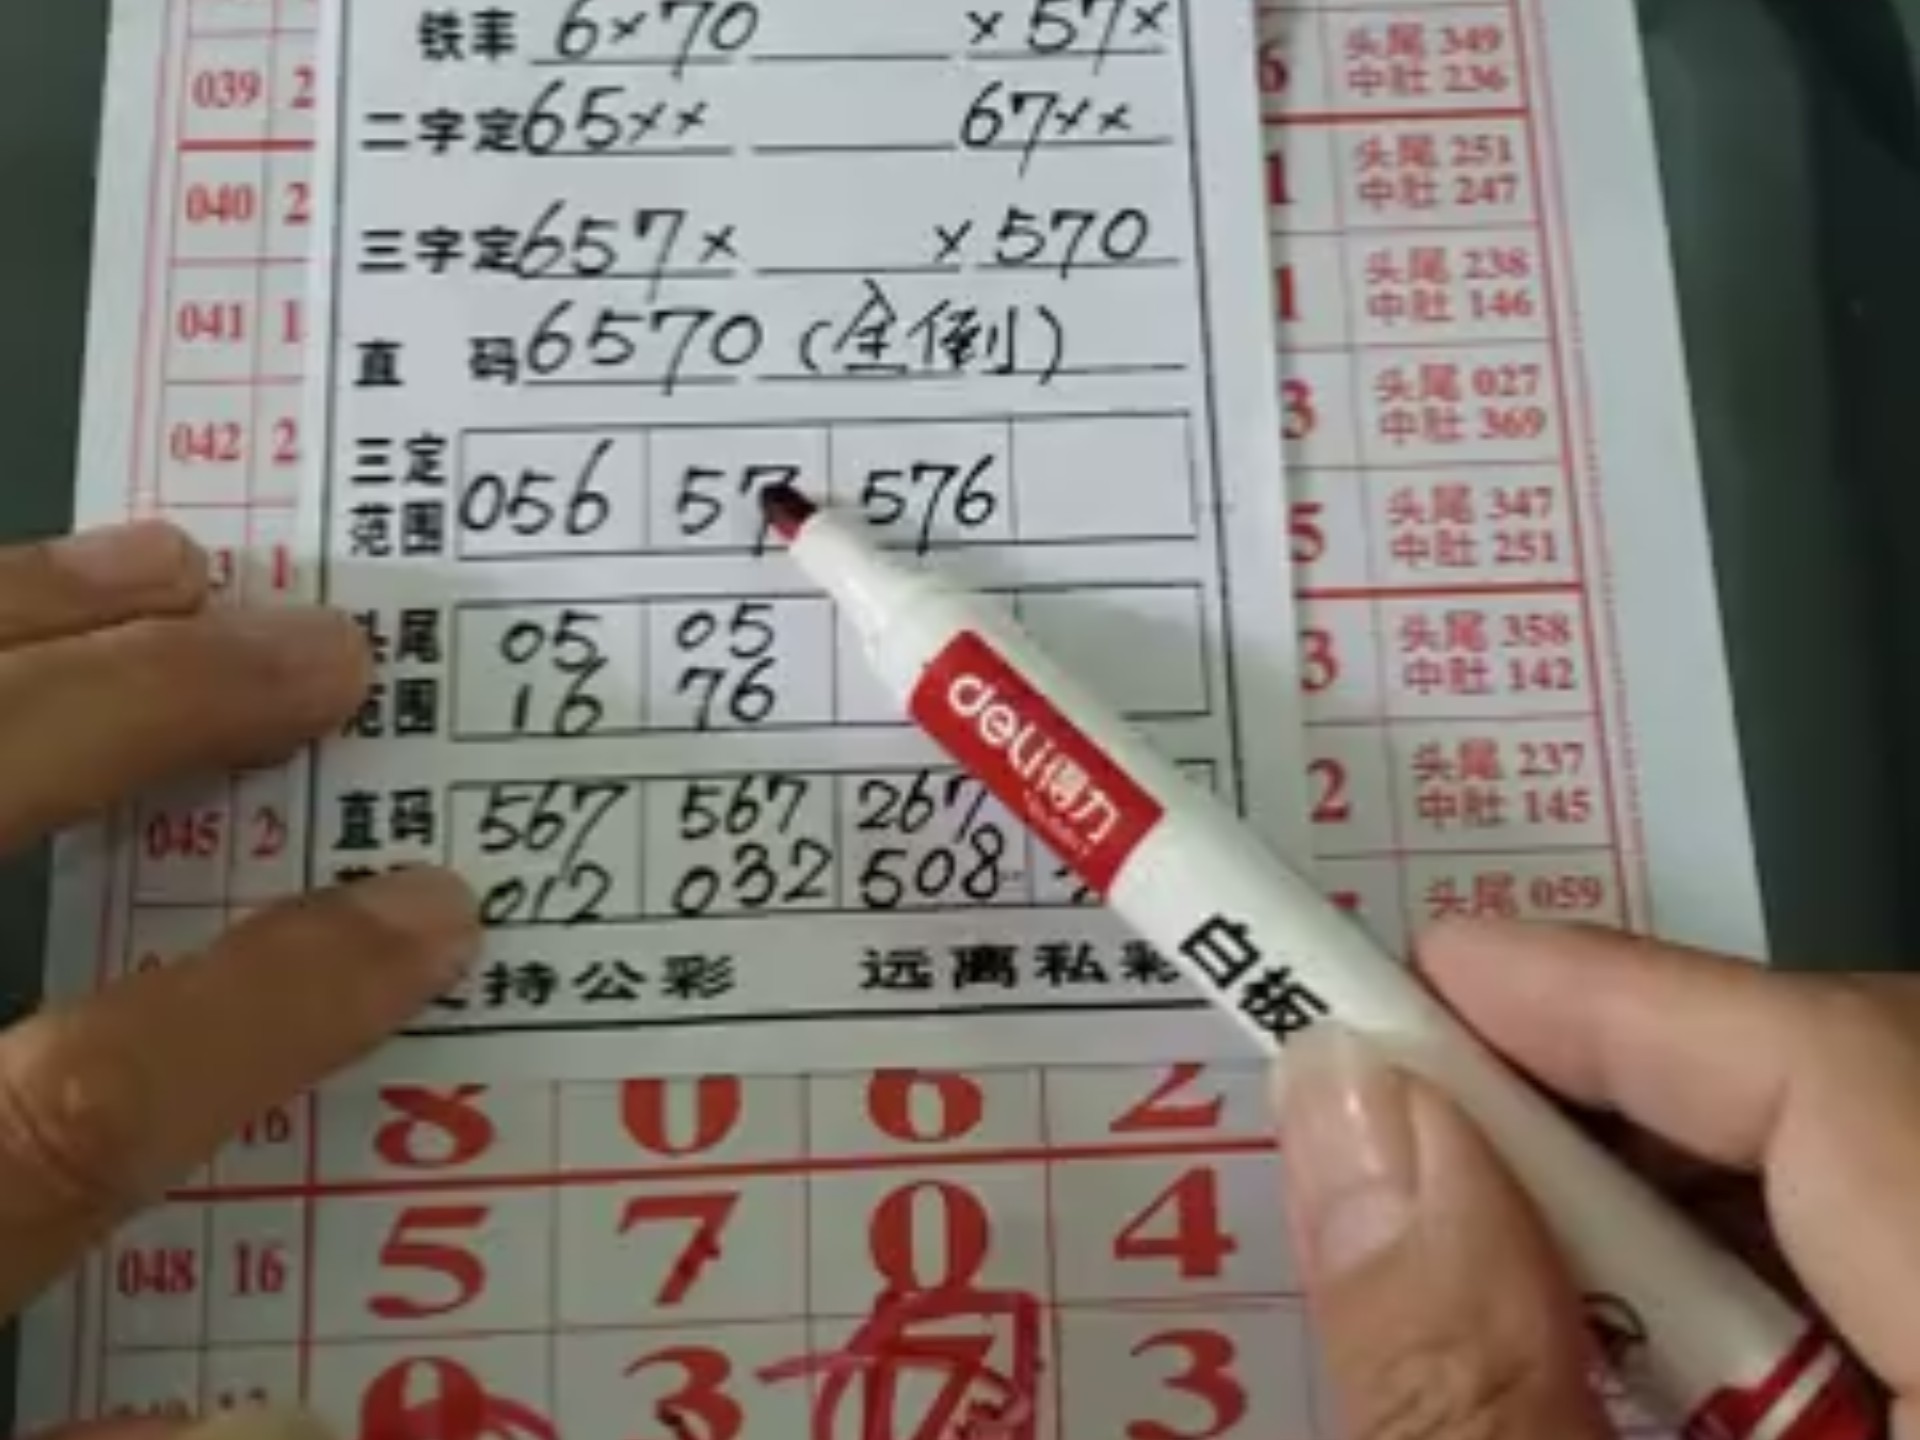 铁率 6×70 ×57×
二字定 65×× 67××
三字定 657× ×570
直 码 6570 (全倒)
三定范围 056 57 576
头尾范围 05 05
16 76
直码 567 567 267
012 032 508
支持公彩 远离私彩
deli 得力
白板
039 2
040 2
041 1
042 2
3 1
045 2
6 头尾 349
中肚 236
1 头尾 251
中肚 247
1 头尾 238
中肚 146
3 头尾 027
中肚 369
5 头尾 347
中肚 251
3 头尾 358
中肚 142
2 头尾 237
中肚 145
头尾 059
16 8 0 6 2
048 16 5 7 0 4
3 7 3